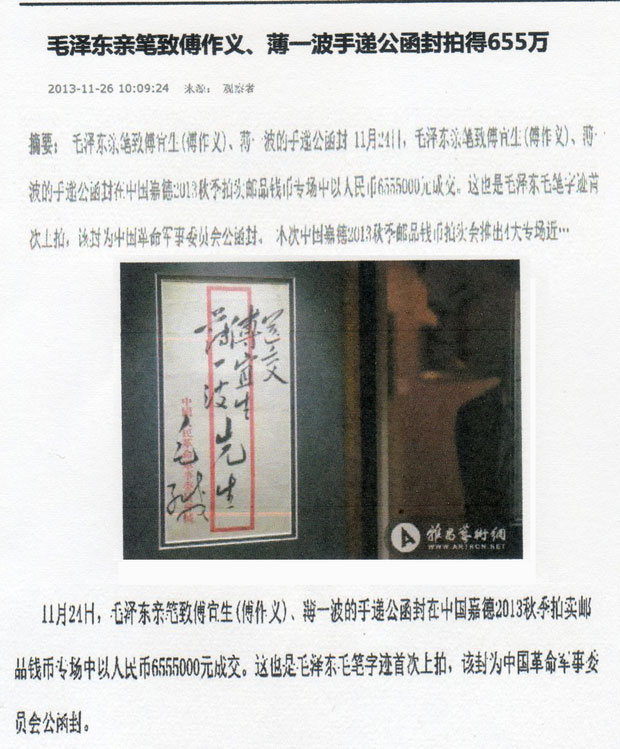 毛泽东亲笔致傅作义、薄一波手递公函封拍得655万
2013-11-26 10:09:24 来源： 观察者
摘要： 毛泽东亲笔致傅宜生(傅作义)、薄一波的手递公函封 11月24日，毛泽东亲笔致傅宜生(傅作义)、薄一
波的手递公函封在中国嘉德2013秋季拍卖邮品钱币专场中以人民币6555000元成交。这也是毛泽东毛笔字迹首
次上拍，该封为中国革命军事委员会公函封。 本次中国嘉德2013秋季邮品钱币拍卖会推出4大专场近…
送交
傅宜生先生
薄一波
毛缄
雅昌藝術網
WWW.ARTRON.NET
11月24日，毛泽东亲笔致傅宜生(傅作义)、薄一波的手递公函封在中国嘉德2013秋季拍卖邮
品钱币专场中以人民币6555000元成交。这也是毛泽东毛笔字迹首次上拍，该封为中国革命军事委
员会公函封。